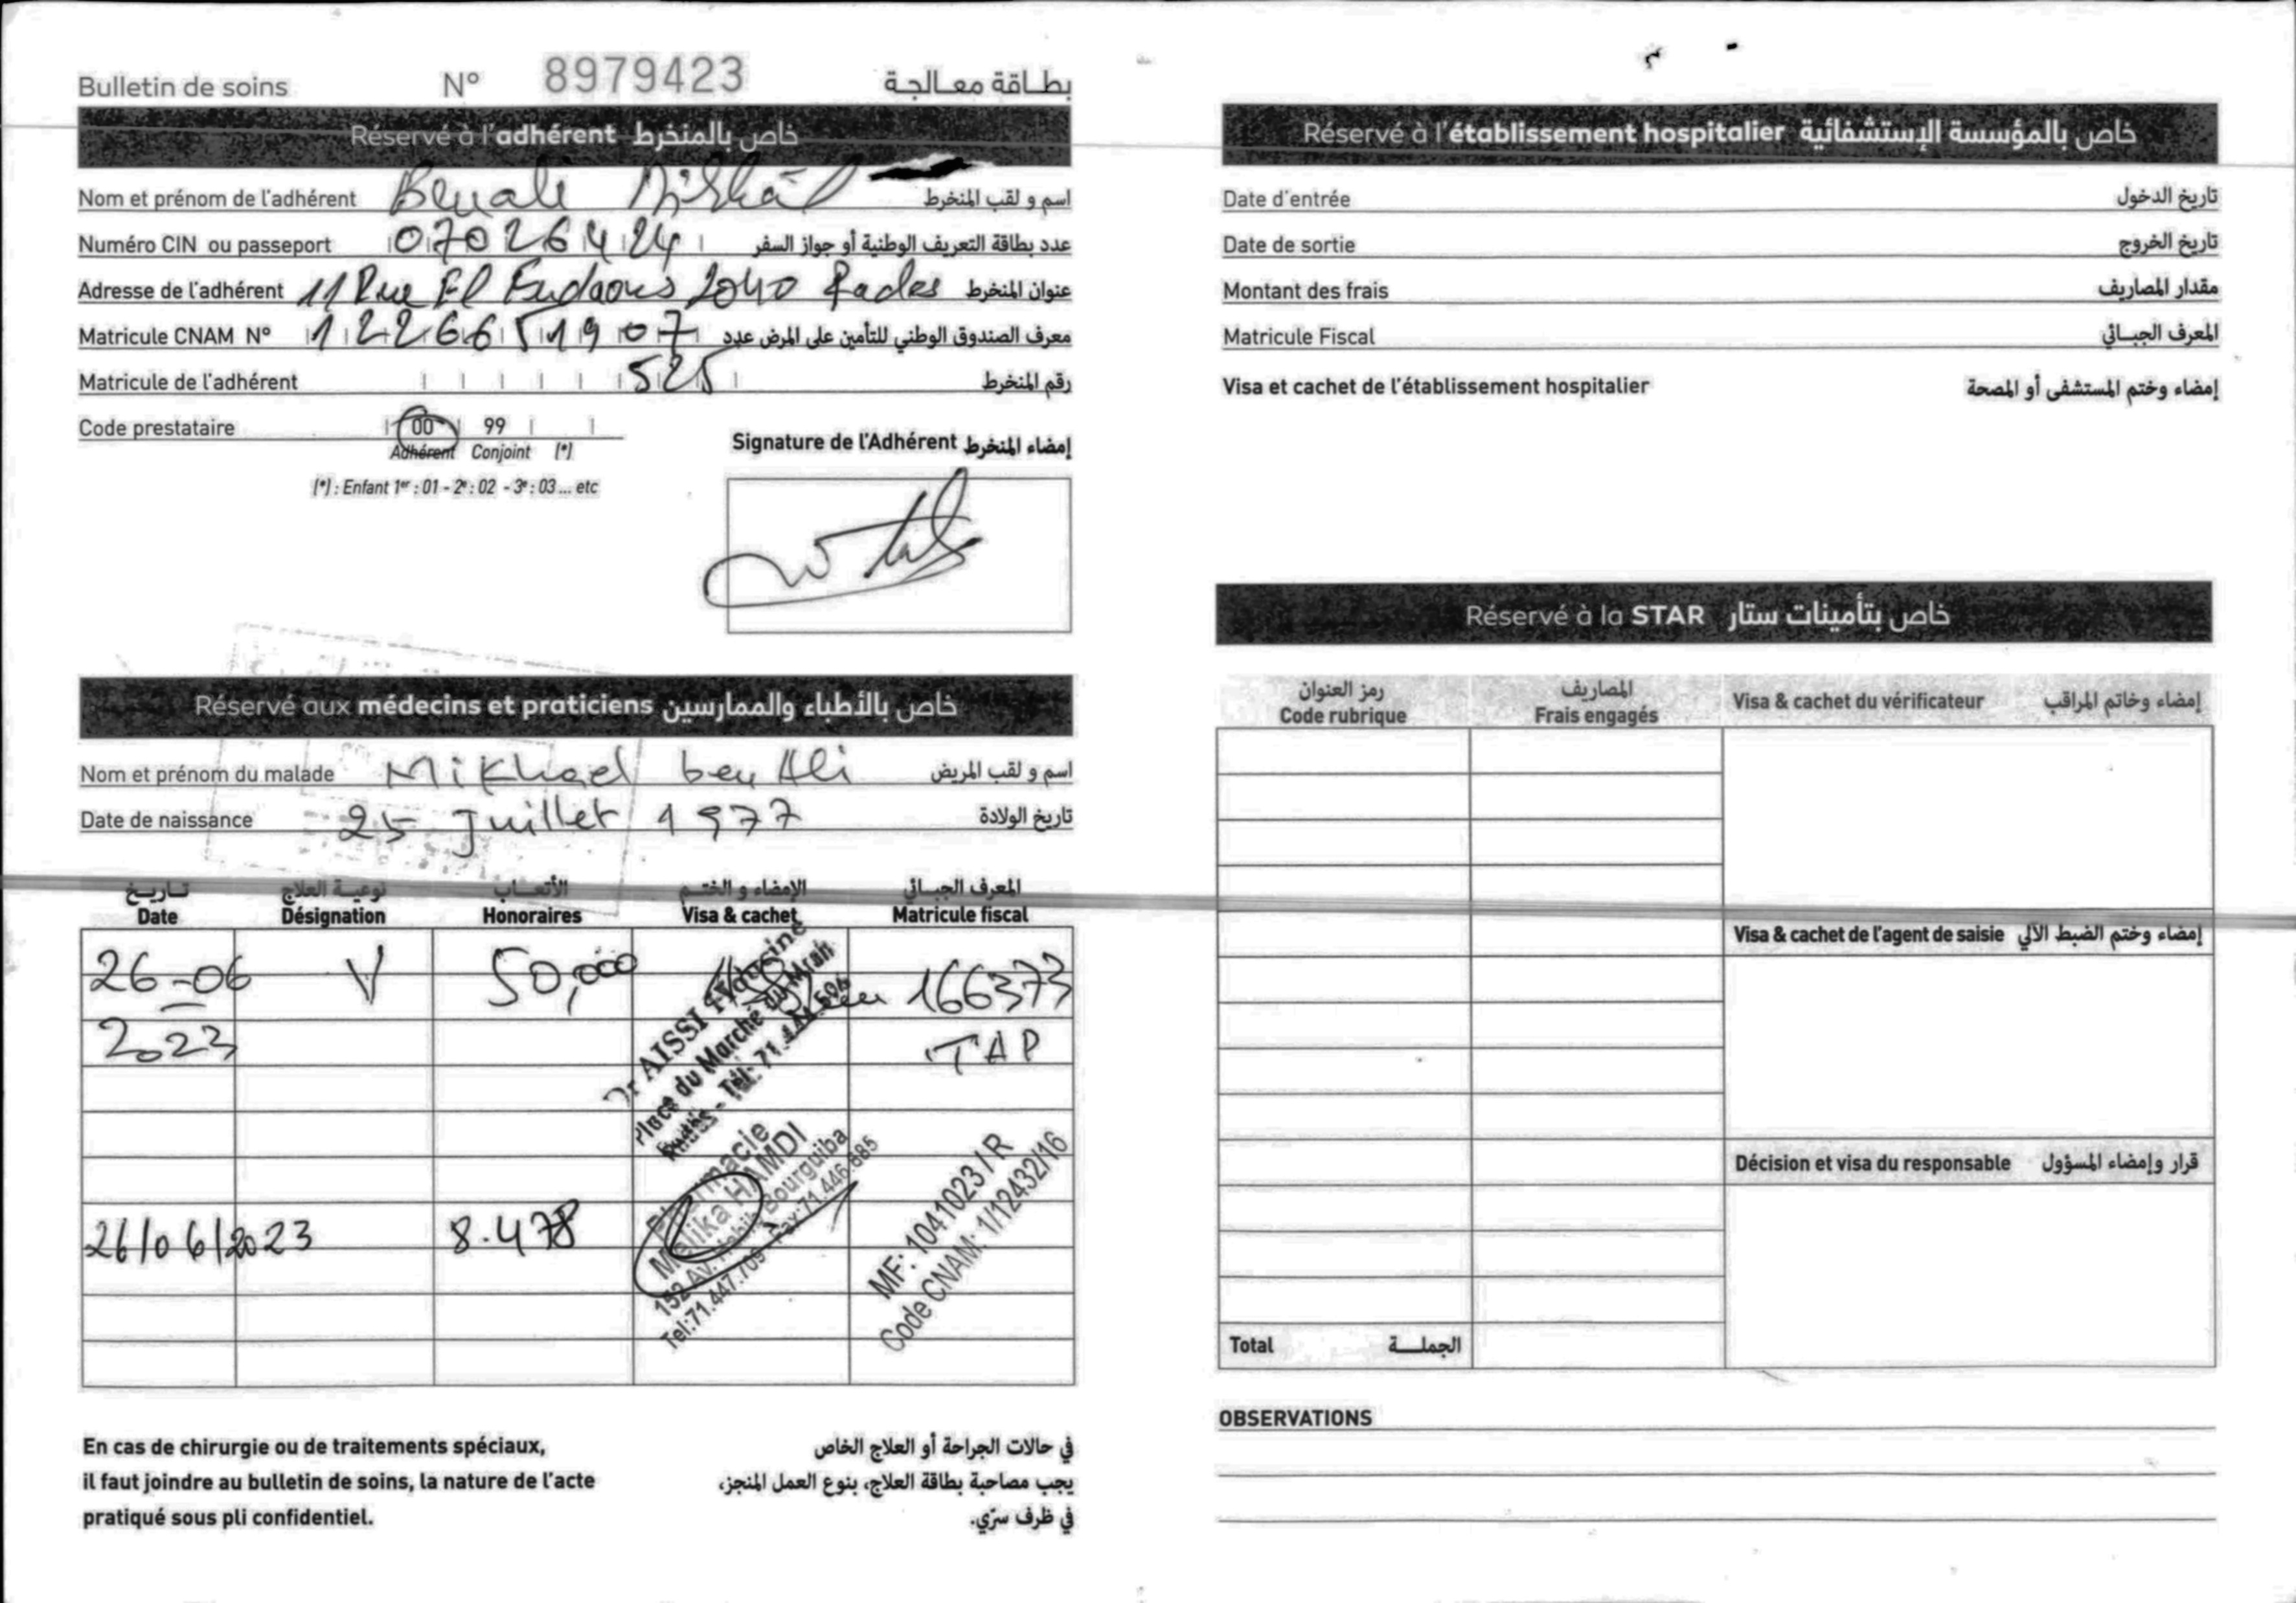 Bulletin de soins N° 8979423 بطاقة معالجة
Réservé à l'adhérent خاص بالمنخرط
Nom et prénom de l'adhérent Benali اسم و لقب المنخرط
Numéro CIN ou passeport 07026424 عدد بطاقة التعريف الوطنية أو جواز السفر
Adresse de l'adhérent 11 Rue El 2040 Rades عنوان المنخرط
Matricule CNAM N° 1226651907 معرف الصندوق الوطني للتأمين على المرض عدد
Matricule de l'adhérent 525 رقم المنخرط
Code prestataire 00 99
Adhérent Conjoint (*)
(*) : Enfant 1er : 01 - 2e : 02 - 3e : 03 ... etc
Signature de l'Adhérent إمضاء المنخرط
Réservé aux médecins et praticiens خاص بالأطباء والممارسين
Nom et prénom du malade Mikhael ben Ali اسم و لقب المريض
Date de naissance 25 Juillet 1977 تاريخ الولادة
تاريخ نوعية العلاج الأتعاب الإمضاء و الختم المعرف الجبائي
Date Désignation Honoraires Visa & cachet Matricule fiscal
26-06 V 50,000 166373
2023 TAP
Dr AISSI
Place du Marché du
Rades - Tél: 71
26/06/2023 8.478
Pharmacie
Malika HAMDI
152 Av. Habib Bourguiba
Tel:71.447.709 - Fax:71.446.685
MF: 1041023 / R
Code CNAM: 1/12432/16
En cas de chirurgie ou de traitements spéciaux,
il faut joindre au bulletin de soins, la nature de l'acte
pratiqué sous pli confidentiel.
في حالات الجراحة أو العلاج الخاص
يجب مصاحبة بطاقة العلاج، بنوع العمل المنجز،
في ظرف سرّي.
Réservé à l'établissement hospitalier خاص بالمؤسسة الإستشفائية
Date d'entrée تاريخ الدخول
Date de sortie تاريخ الخروج
Montant des frais مقدار المصاريف
Matricule Fiscal المعرف الجبائي
Visa et cachet de l'établissement hospitalier إمضاء وختم المستشفى أو المصحة
Réservé à la STAR خاص بتأمينات ستار
رمز العنوان المصاريف
Code rubrique Frais engagés Visa & cachet du vérificateur إمضاء وخاتم المراقب
Visa & cachet de l'agent de saisie إمضاء وختم الضبط الآلي
Décision et visa du responsable قرار وإمضاء المسؤول
Total الجملة
OBSERVATIONS